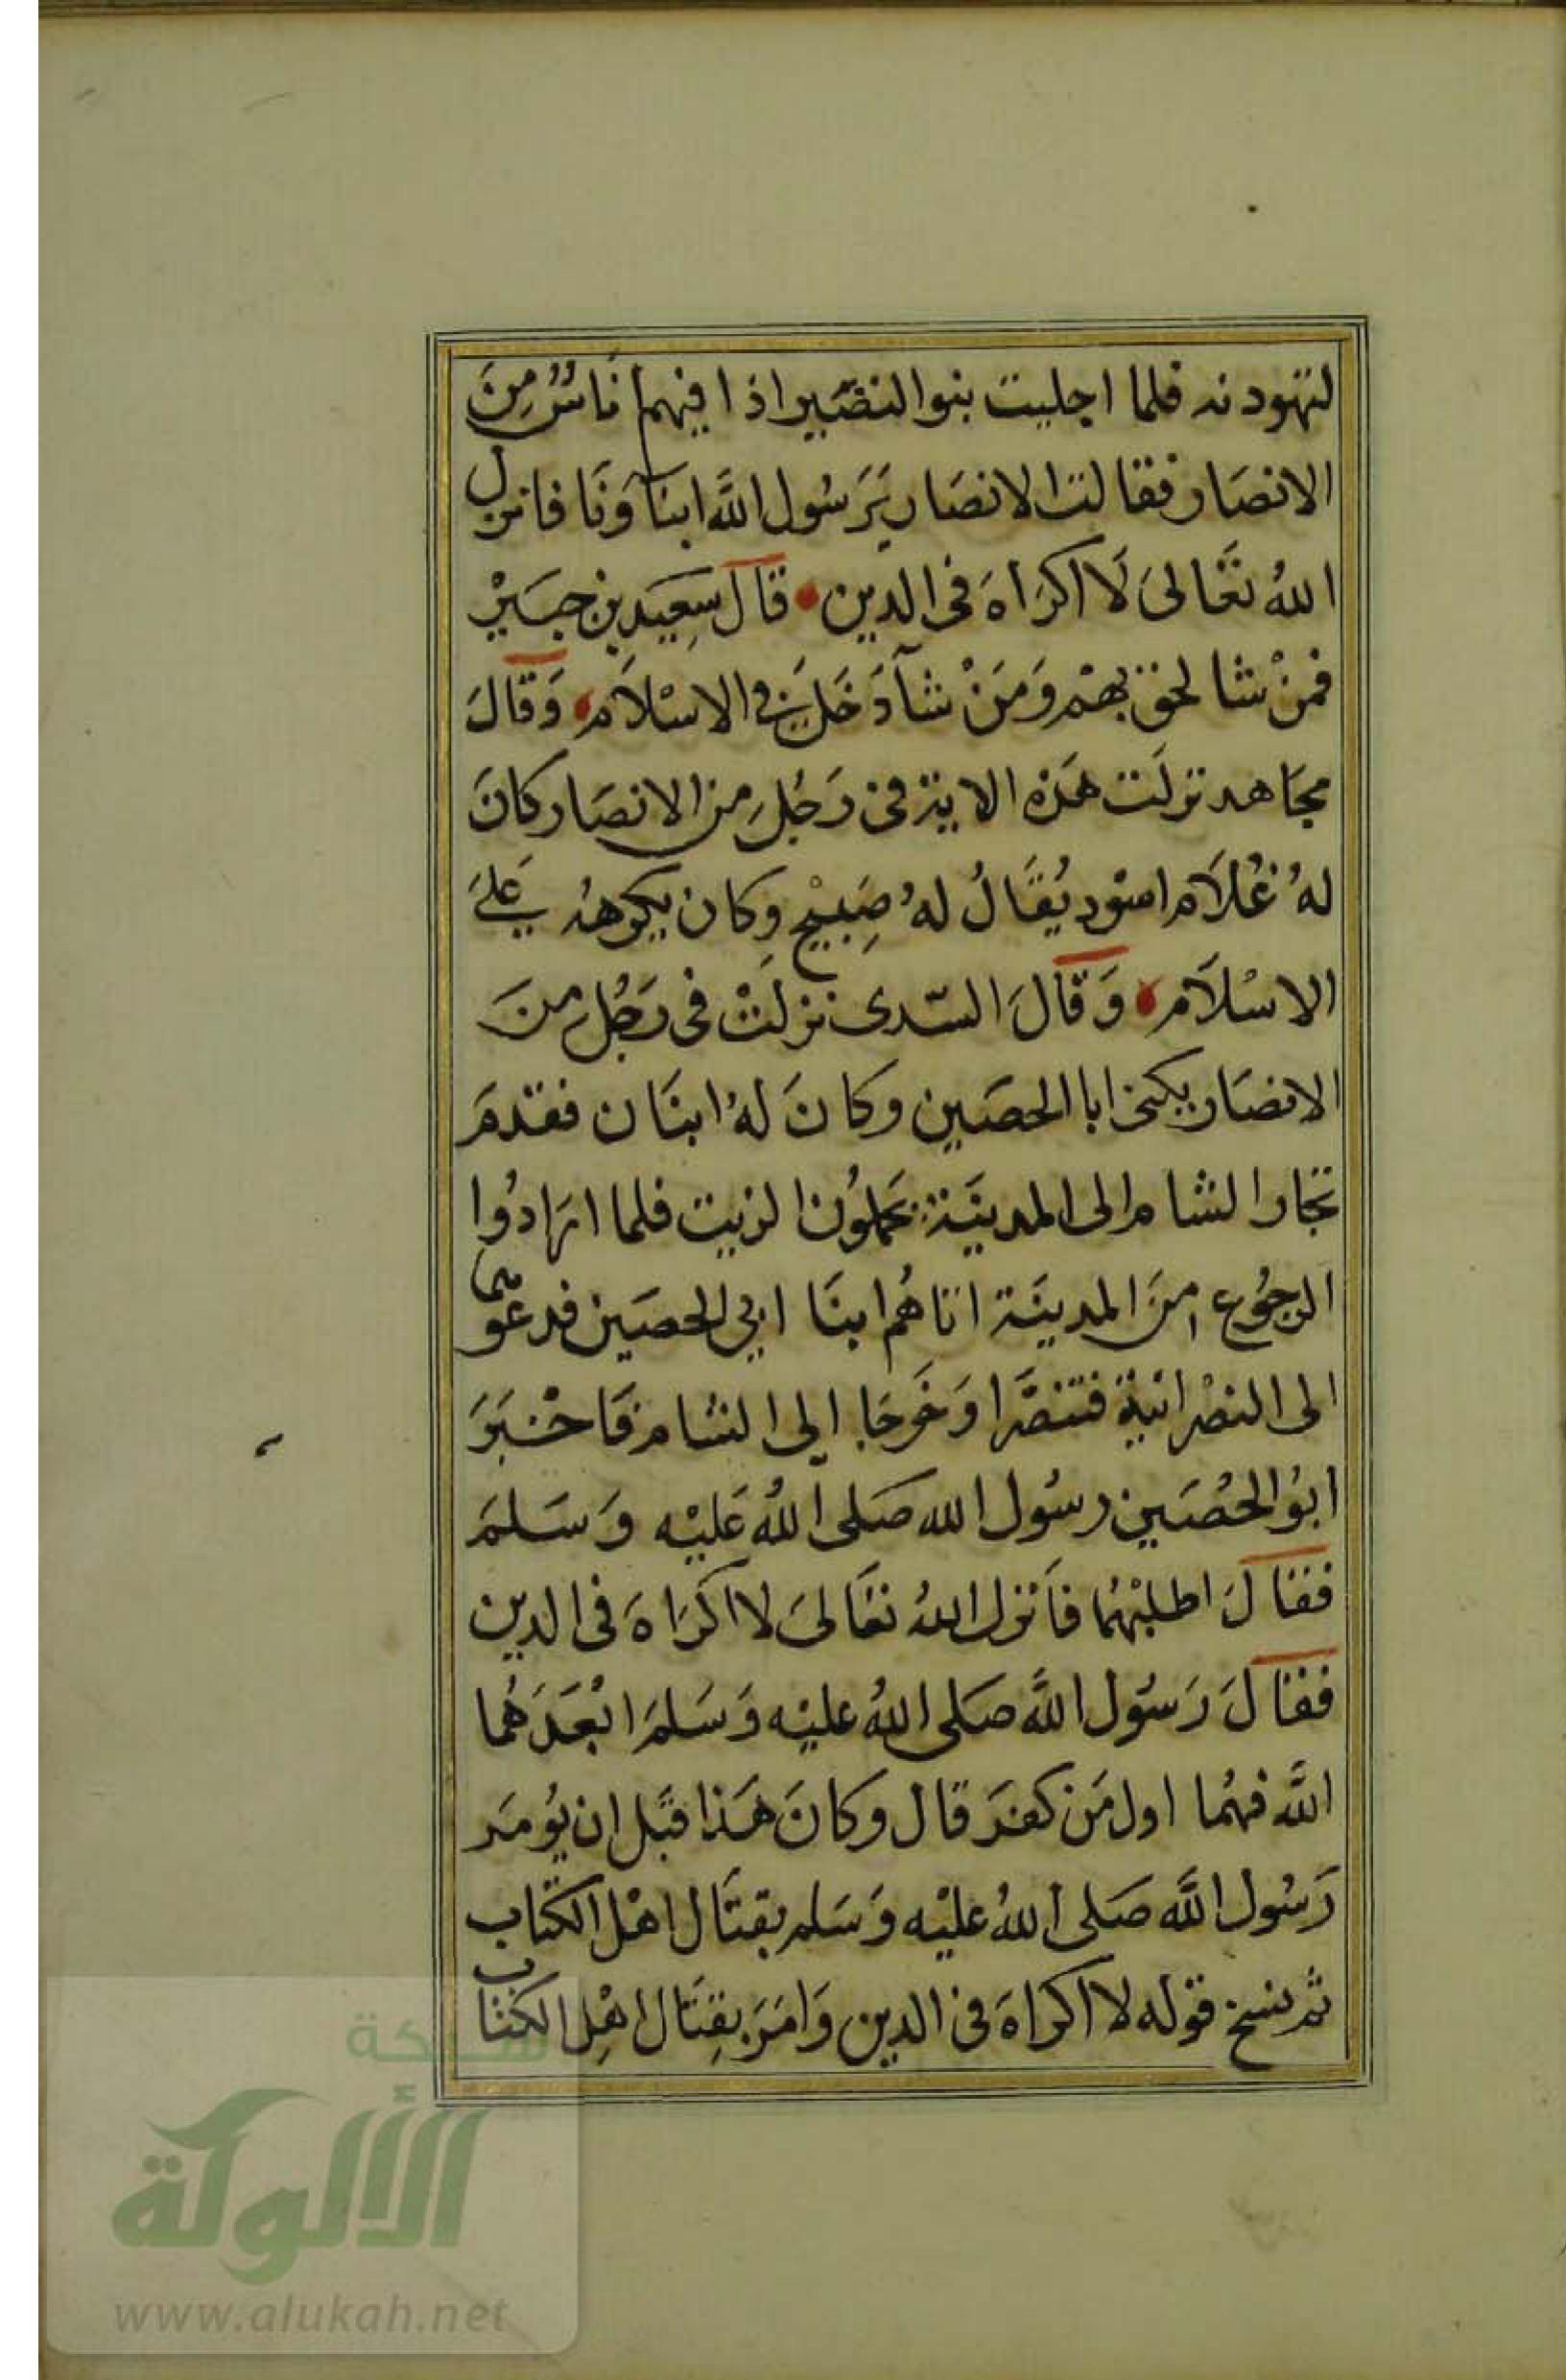 لتهودنه فلما اجليت بنوا النضير اذا فيهم نَاسٌ مِنَ
الانصَار فقالت الانصَار يَرَسُول اللَّه ابنآؤنَا فانزل
اللهُ تعَالىَ لَا اكرَاهَ فى الدين قَالَ سَعِيَد بن جبَيْر
فمنْ شا لحق بهمْ وَمَنْ شآ دَخَلَ فى الاسْلاَم وَقَالَ
مجَاهد نزلَت هَذه الاية فى رَجُلِ من الانصَار كانَ
لهُ غُلاَم اسْود يُقَالُ لهُ صِبيْح وكان يكرهه عَلىَ
الاسْلاَم وَقَالَ السّدى نزلتْ فى رَجُلِ منَ
الانصَار يكنى ابا الحصَين وكانَ لهُ ابنَان فقدمَ
تجَار الشام الى المدينَة يحملوُن الزيت فلما ارَادُوا
الرجُوع منَ المدينَة اتاهُم ابنَا ابي الحصَين فدعوهما
الى النصْرانية فتنصَّرا وَخَرجَا الى الشام فَاخْبَرَ
ابوُ الحُصَين رسُول الله صَلى اللهُ عَليْه وَسَلمَ
فقالَ اطلبْهُما فاَنزل اللهُ تعَالىَ لا اكرَاهَ فى الدين
فقالَ رَسوُل اللَّه صَلى اللهُ عليْه وَسَلمَ ابْعَدَهُما
اللَّه فهُما اول مَن كفرَ قال وكانَ هَذا قبَل ان يُومَر
رَسُول اللَّه صَلى اللهُ عليْه وَسَلم بقتَال اهْل الكتاب
ثم نسخ قوله لا اكراهَ فى الدين وَامَرَ بقِتَال اهْلِ الكتاب
شبكة
الألوكة
www.alukah.net